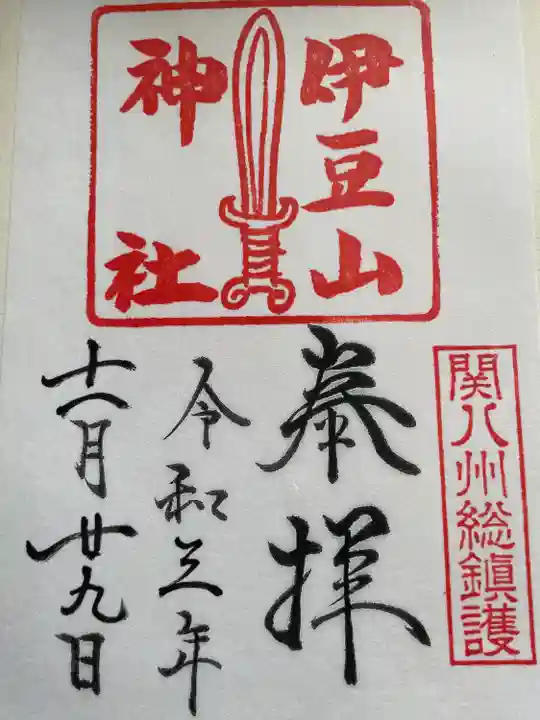 伊豆山
神社
関八州総鎮護
奉拝
令和三年
月廿九日